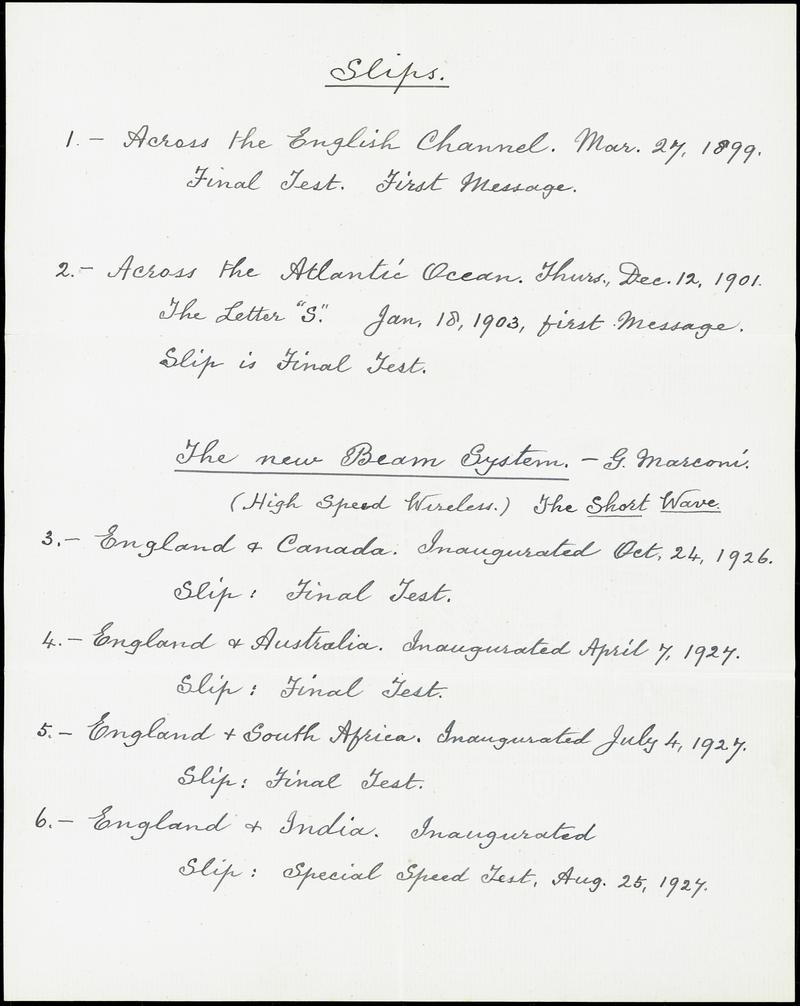 Slips.
1. - Across the English Channel. Mar. 27, 1899.
Final Test. First Message.
2. - Across the Atlantic Ocean. Thurs., Dec. 12, 1901.
The Letter "S". Jan. 18, 1903, first Message.
Slip is Final Test.
The new Beam System. - G. Marconi.
(High Speed Wireless.) The Short Wave.
3. - England & Canada. Inaugurated Oct. 24, 1926.
Slip: Final Test.
4. - England & Australia. Inaugurated April 7, 1927.
Slip: Final Test.
5. - England & South Africa. Inaugurated July 4, 1927.
Slip: Final Test.
6. - England & India. Inaugurated
Slip: Special Speed Test, Aug. 25, 1927.